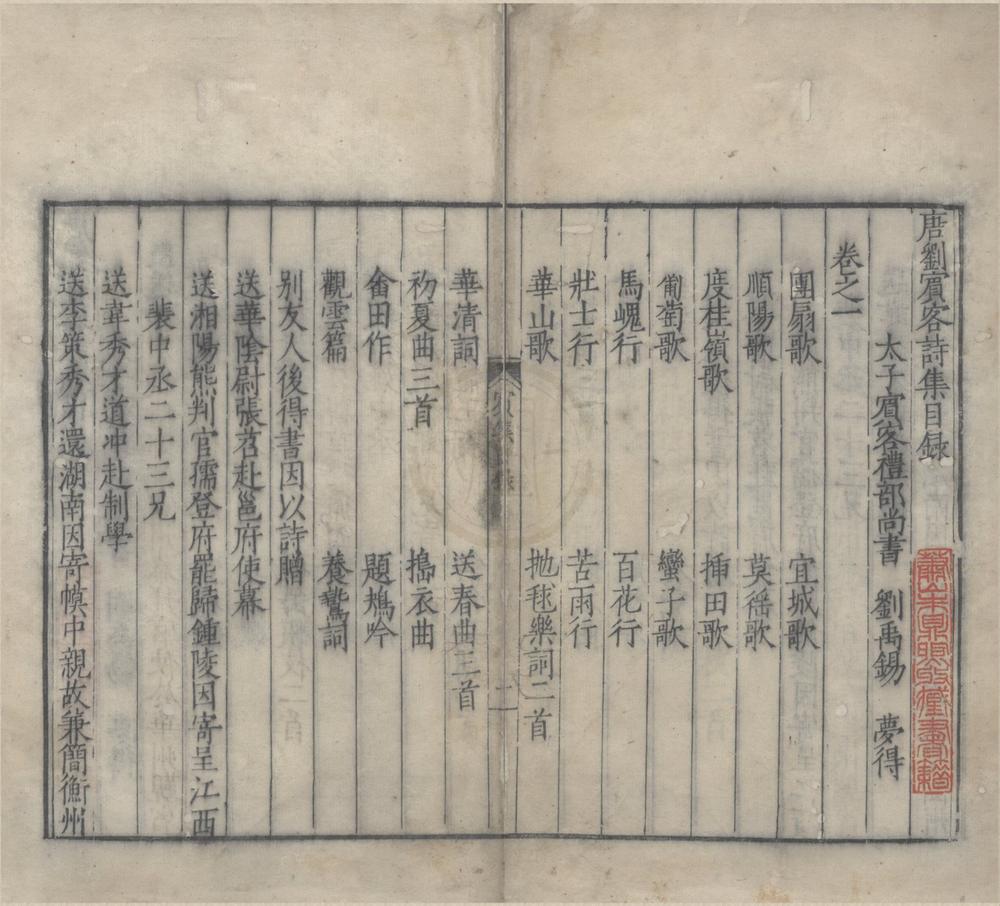 唐劉賓客詩集目錄
太子賓客禮部尚書 劉禹錫 夢得
卷之一
團扇歌 宜城歌
順陽歌 莫徭歌
度桂嶺歌 揷田歌
葡萄歌 蠻子歌
馬嵬行 百花行
壯士行 苦雨行
華山歌 抛毬樂詞二首
華清詞 送春曲三首
初夏曲三首 搗衣曲
畬田作 題鴆吟
觀雲篇 養鷙詞
别友人後得書因以詩贈
送華陰尉張苕赴邕府使幕
送湘陽熊判官孺登府罷歸鍾陵因寄呈江西
裴中丞二十三兄
送韋秀才道冲赴制舉
送李策秀才還湖南因寄幙中親故兼簡衡州